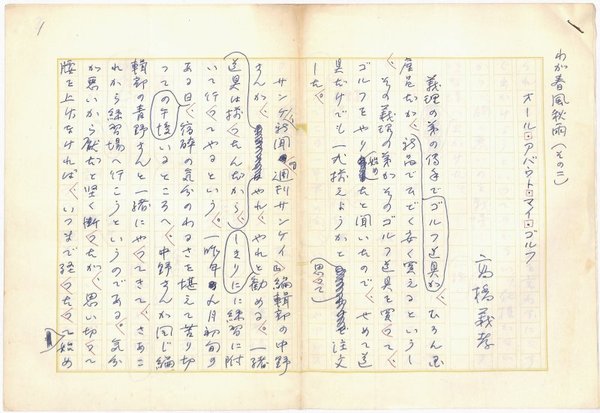 1
わが春風秋雨(その二)
オール・アバウト・マイ・ゴルフ
高橋義孝
義理の弟の傍でゴルフ道具が、むろん国
産品だが、部品でひどく安く買えるというし
、その義理の弟がそのゴルフ道具を買って、
ゴルフをやり始めたと聞いたので、せめて道
具だけでも一式揃えようかと思って注文
した。
サンケイ新聞の週刊サンケイ編輯部の中野
さんが、やれ、やれと勧める。一緒
道具は揃ったんだから、しきりに練習に附
いて行ってやるという。一昨年八月初旬の
ある日、宿酔の気分のわるさを堪えて苦り切
っての午後いるところへ、中野さんが同じ編
輯部の青野さんと一緒にやってきて、さあこ
れから練習場へ行こうというのである。気分
が悪いから厭だと堅く断ったが、思い切って
腰を上げなければ、いつまで経ったって始め